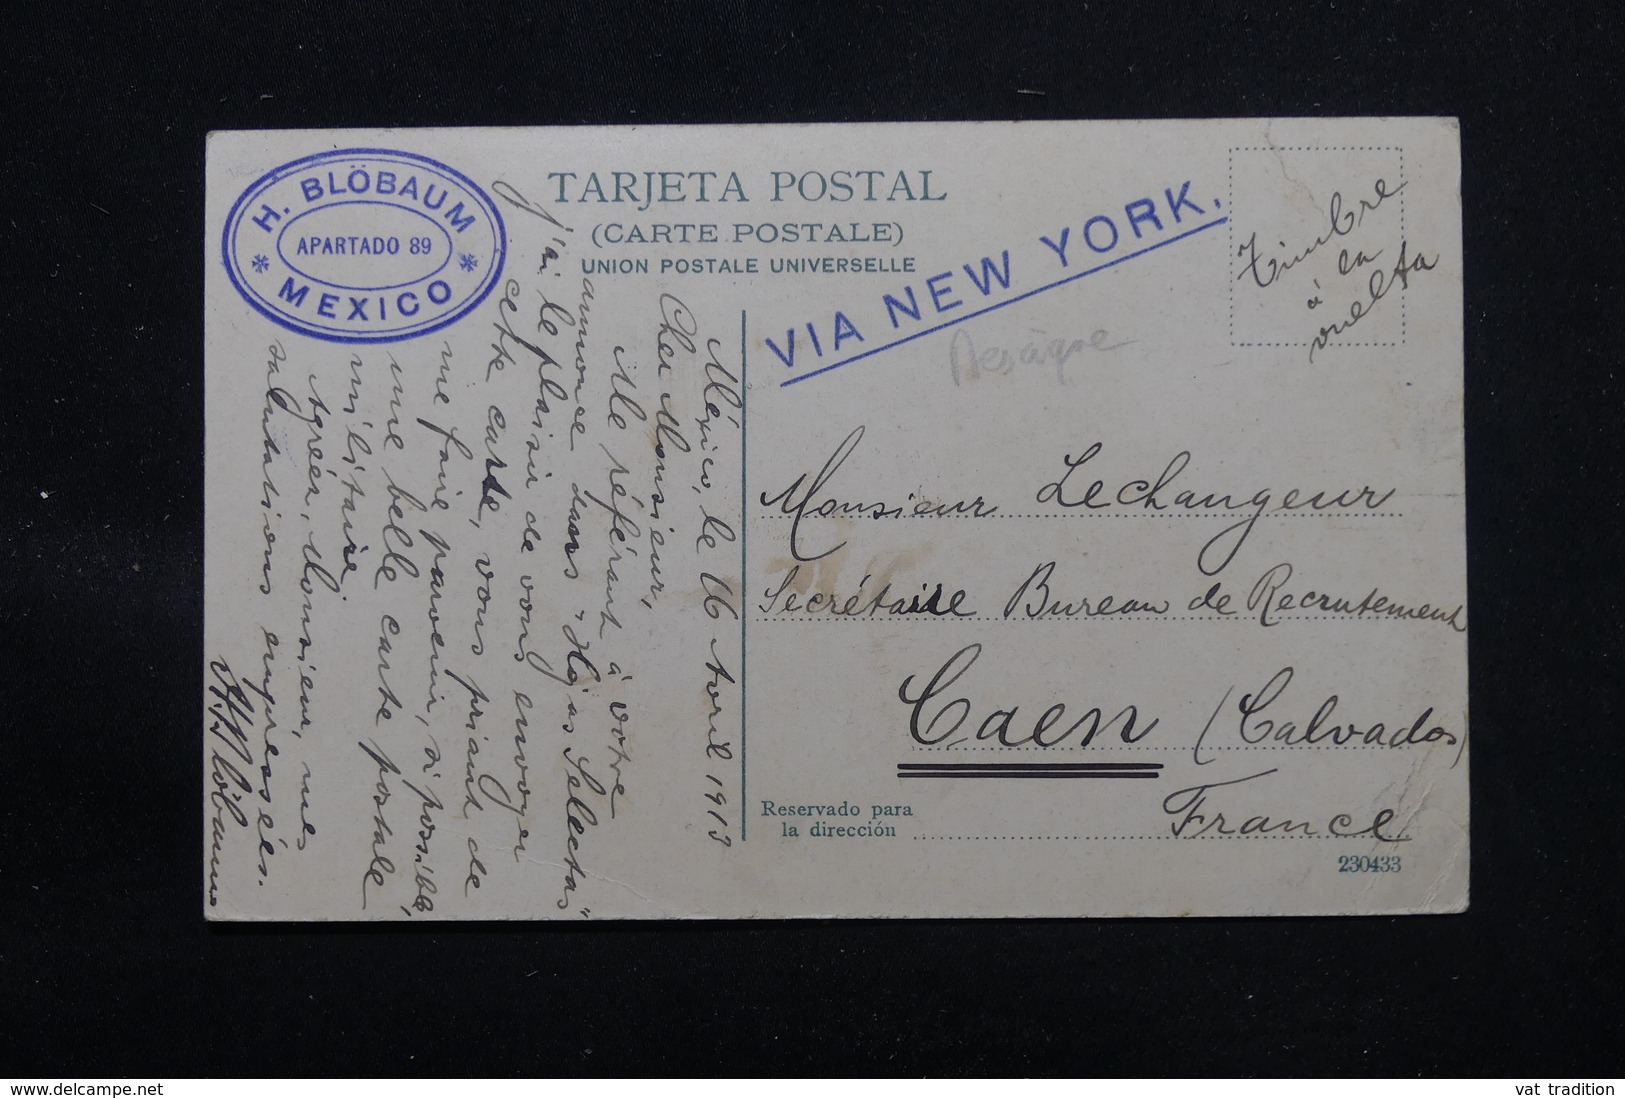 H. BLÖBAUM
APARTADO 89
MEXICO
TARJETA POSTAL
(CARTE POSTALE)
UNION POSTALE UNIVERSELLE
VIA NEW YORK.
Timbre
à la
vuelta
México, le 16 Avril 1913
Cher Monsieur,
Me référant à votre
annonce dans "Hojas Selectas"
j'ai le plaisir de vous envoyer
cette carte, vous priant de
me faire parvenir, si possible,
une belle carte postale
militaire.
Agréer, Monsieur, mes
salutations empressées.
H. Blöbaum
Monsieur Lechangeur
Secrétaire Bureau de Recrutement
Caen (Calvados)
France
Reservado para
la dirección
230433
delcampe.net
vat_tradition